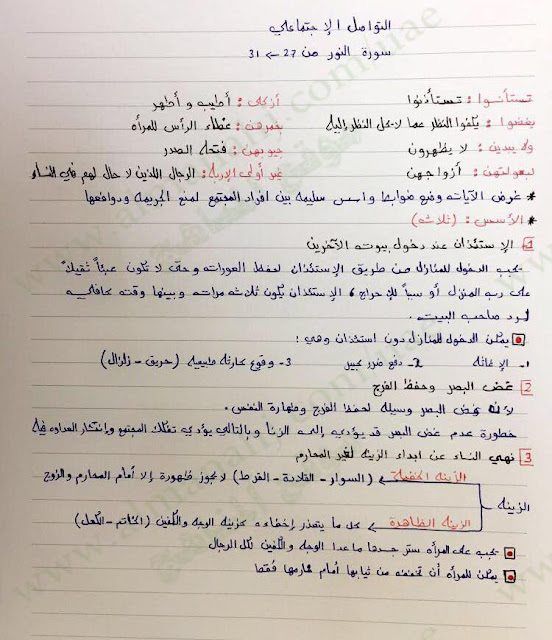 التواصل الإجتماعي
سورة النور من 27 ← 31
تستأنسوا: تستأذنوا أزكى: أطيب و أطهر
يغضوا: يكفوا النظر عما لا يحل النظر إليه بخمرهن: غطاء الرأس للمرأه
ولا يبدين: لا يظهرون جيوبهن: فتحة الصدر
لبعولتهن: أزواجهن غير أولي الإربة: الرجال اللذين لا حال لهم في النساء
* غرض الآيات وضع ضوابط واسس سليمه بين افراد المجتمع لمنع الجريمه ودوافعها
* الأسس: (ثلاثه)
1 الإستئذان عند دخول بيوت الآخرين
يجب الدخول للمنازل من طريق الإستئذان لحفظ العورات وحتى لا تكون عبئاً ثقيلاً
على رب المنزل أو سبباً للإحراج، الإستئذان يكون ثلاثه مرات وبينها وقت كافي
لرد صاحب البيت.
يمكن الدخول للمنازل دون استئذان وهي:
1- الإغاثه 2- دفع ضرر كبير 3- وقوع كارثه طبيعيه (حريق - زلزال)
2 غض البصر وحفظ الفرج
لأنه غض البصر وسيله لحفظ الفرج وطهارة النفس.
خطورة عدم غض البصر قد يؤدي إلى الزنا وبالتالي يؤدي تفكك المجتمع وانتشار العداوه فيه
3 نهي النساء عن ابداء الزينه لغير المحارم
الزينه الخفية ← (السوار - القلادة - القرط) لا يجوز ظهورة إلا أمام المحارم والزوج
الزينه
الزينه الظاهرة ← كل ما يتعذر إخفاءه كزينة الوجه والكفين (الخاتم - الكحل)
يجب على المرأه ستر جسدها ما عدا الوجه والكفين لكل الرجال
يمكن للمرأه أن تخفف من ثيابها أمام محارمها فقط